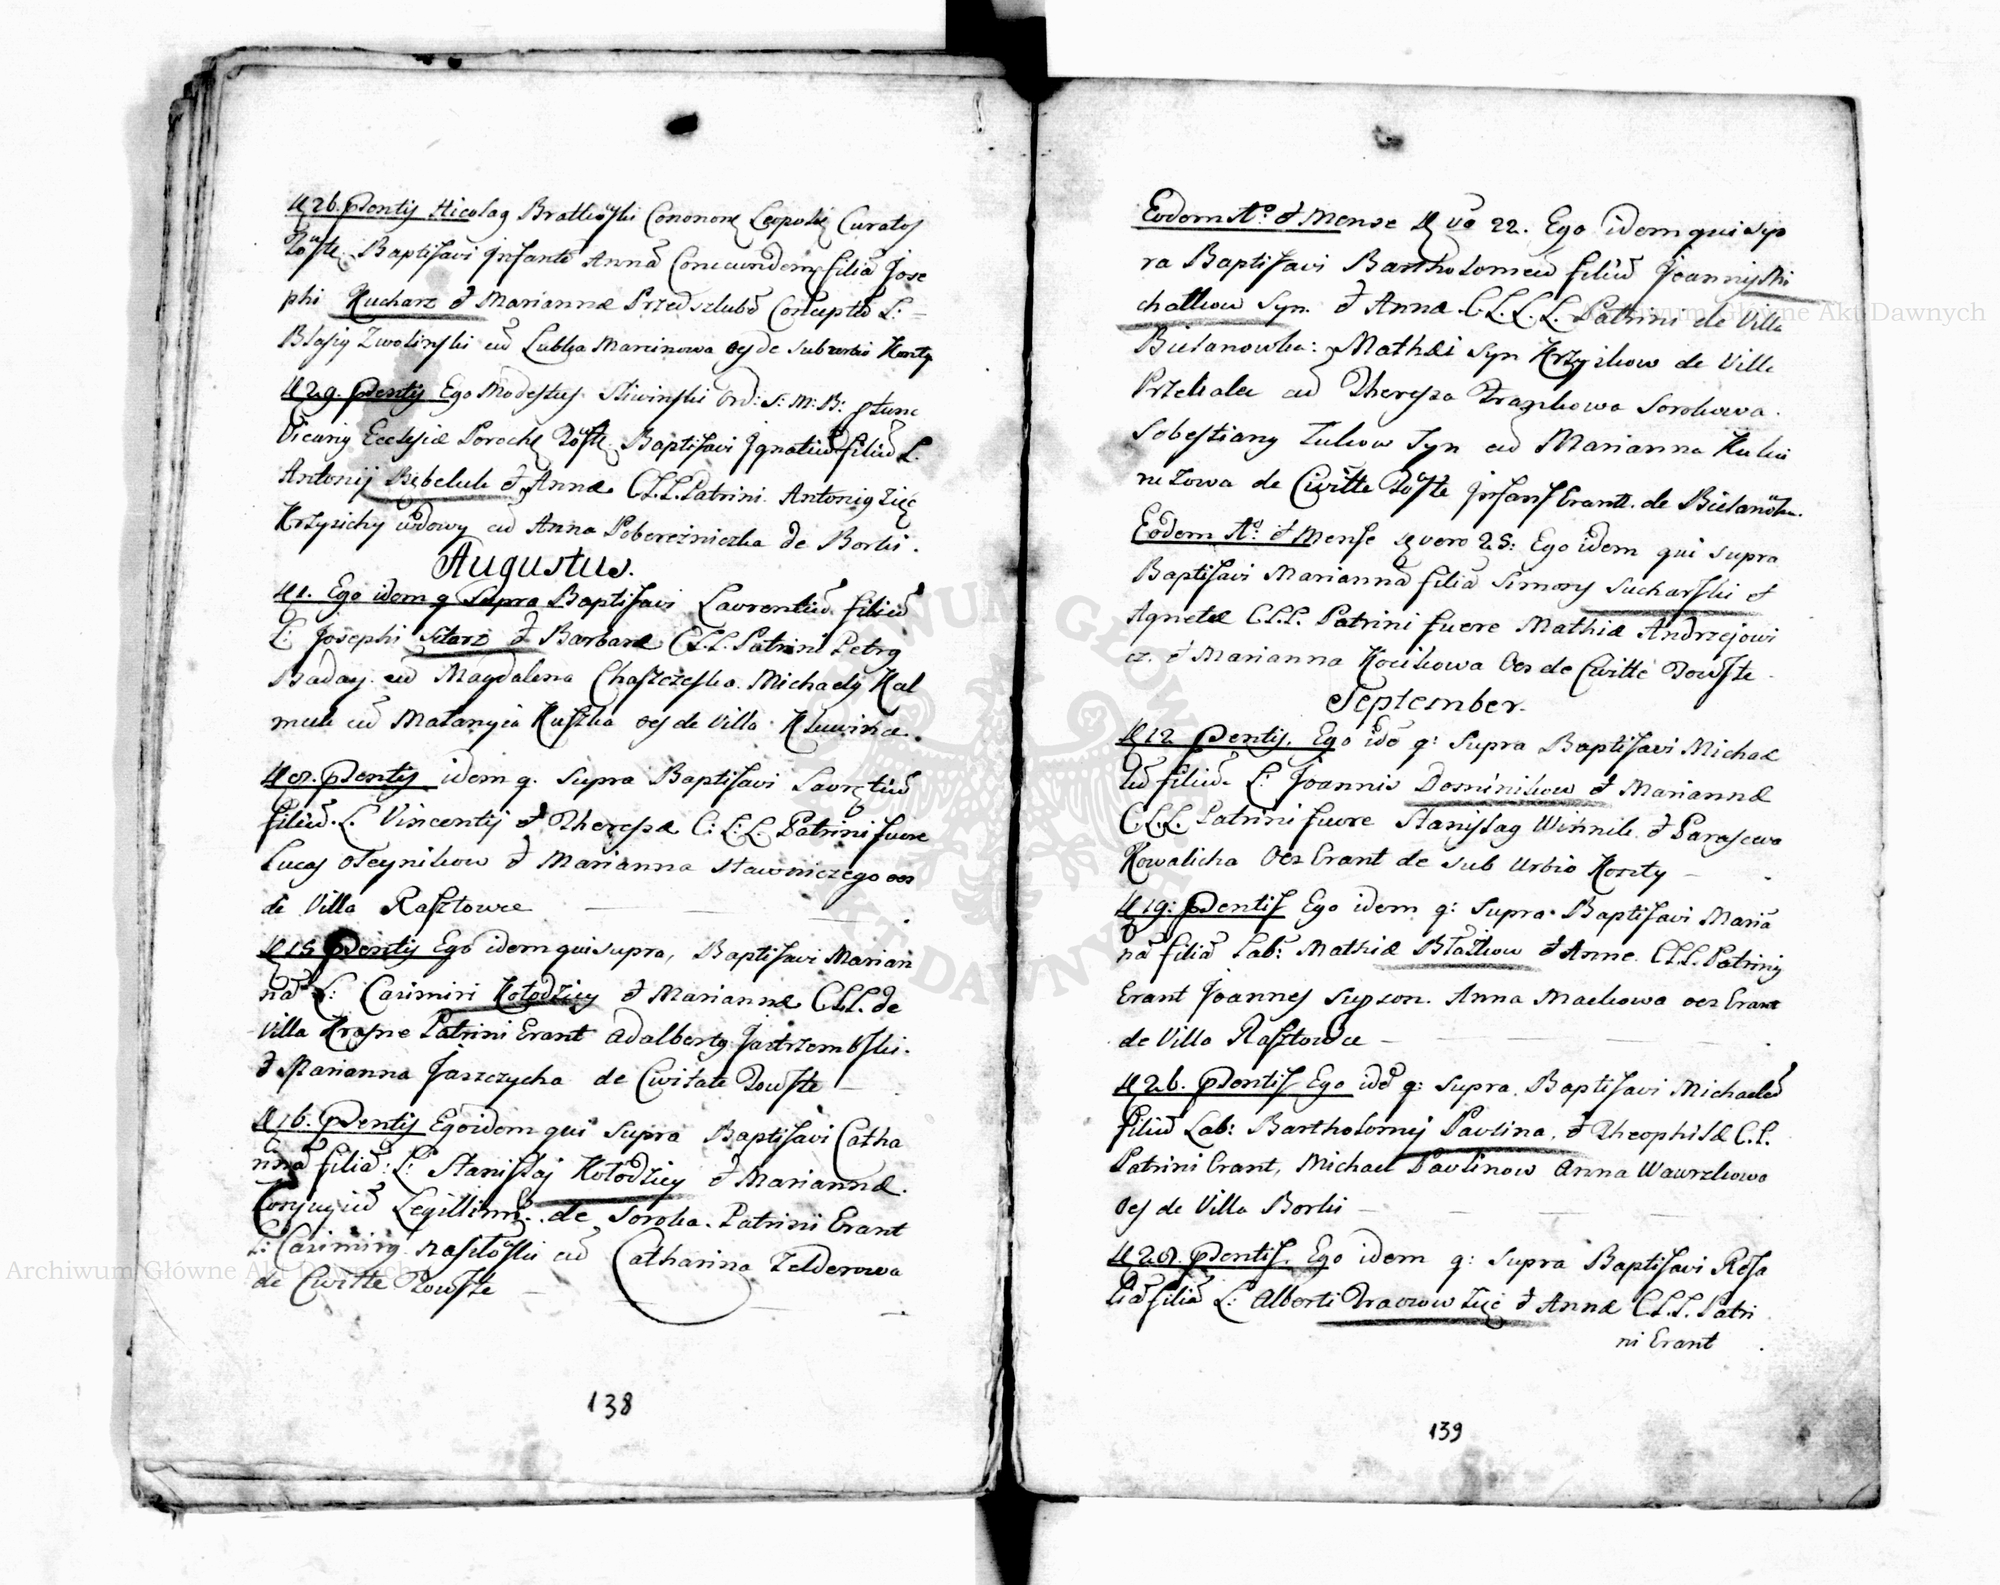 D. 26. Pntis Nicolaus Bratkowski Canonicus Leopolis Curatus
Towste. Baptisavi Infante Annā Concuundem filiā Jose
phi Kucharz et Mariannæ Przedszlubē Conceptā L: –
Blasius Zwolinski cū Lublja Marcinowa oes de suburbio Honty
D. 29. Pentis Ego Modestus Sliwinski Ord: S: M: B: ptunc
Vicarius Ecclesiæ Parochs Towste. Baptisavi Ignatiū filiū L.
Antonij Bębelub et Annæ C.L.L. Patrini. Antonius Zięc
Krzysichy wdowy cū Anna Pobereżniczka de Borki.
Augustus.
D 1. Ego idem q Supra Baptisavi Laurentiū filiū
L: Josephi Starz et Barbaræ C.L.L. Patrini Petrus
Baday cū Magdalena Chaszczeska. Michaels Kal
muk cū Matanyia Kuszka oes de Villa Kluwince.
D 8. Pentis idem q. supra Baptisavi Laurętiū
filiū. L. Vincentij et Theresæ C: L: L. Patrini fuere
Lucas Oleynikow et Marianna stawniczego oes
de Villa Rasztowce
D 15 Pentis Ego idem qui supra, Baptisavi Marian
nā L: Casimiri Kołodziey et Mariannæ C.L.L. de
Villa Krasne Patrini Erant Adalbertus Jastrzembski.
et Marianna Jaszczycha de Civitate Towste –
D 16. Pentis Ego idem qui supra Baptisavi Catha
rinā filiā: L: Stanislaj Kołodziey et Mariannæ.
Conjugiū Legittim. de Soroka. Patrini Erant
L: Casimirus Rasztowski cū Catharina Zelderowa
de Civitte Towste –
138
Eodem Aº: et Mense D vo 22. Ego idem qui sup
ra Baptisavi Bartholomeū filiū Joannis Mi
chałkow Syn. et Annæ C.L.L.L. Patrini de Villa
Bielanowka: Mathei Syn Krzyskow de Villa
Przekalec cū Theresa Frankowa Sorokowa.
Sobestians Zukow Syn cū Marianna Kuku
ruzowa de Civitte Towste Infans Erant. de Bielanówka.
Eodem Aº: et Mense D vero 25: Ego idem qui supra
Baptisavi Mariannā filiā Simonis Sucharski et
Agnetæ C.L.L. Patrini fuere Mathiæ Andrzejowi
cz. et Marianna Kocikowa Oes de Civitte Towste.
September.
D 12 Pentis. Ego idē q: supra Baptisavi Michae
lē filiū. L: Joannis Dominikow et Mariannæ
C.L.L. Patrini fuere Stanislaus Winnik et Parascewa
Kowalicha Oes Erant de sub Urbio Honty –
D 19: Pentis Ego idem q: supra Baptisavi Maria
nā filiā Lab: Mathiæ Błażkow et Anne. C.L.L. Patrinij
Erant Joannes Supson. Anna Mackowa oes Erant
de Villa Rasztowce –
D 26. Pentis Ego idē q: supra. Baptisavi Michaelē
filiū Lab: Bartholomej Pavlina. et Theophilæ C.L.
Patrini Erant, Michael Pavlinow Anna Wawrzkowa
Oes de Villa Borki –
D 28. Pentis. Ego idem q: supra Baptisavi Rosa
liā filiā L: Alberti Tracrow Zięć et Annæ C.L.L. Patri
ni Erant
139
Archiwum Główne Akt Dawnych
Archiwum Główne Akt Dawnych
ARCHIWUM GŁÓWNE AKT DAWNYCH